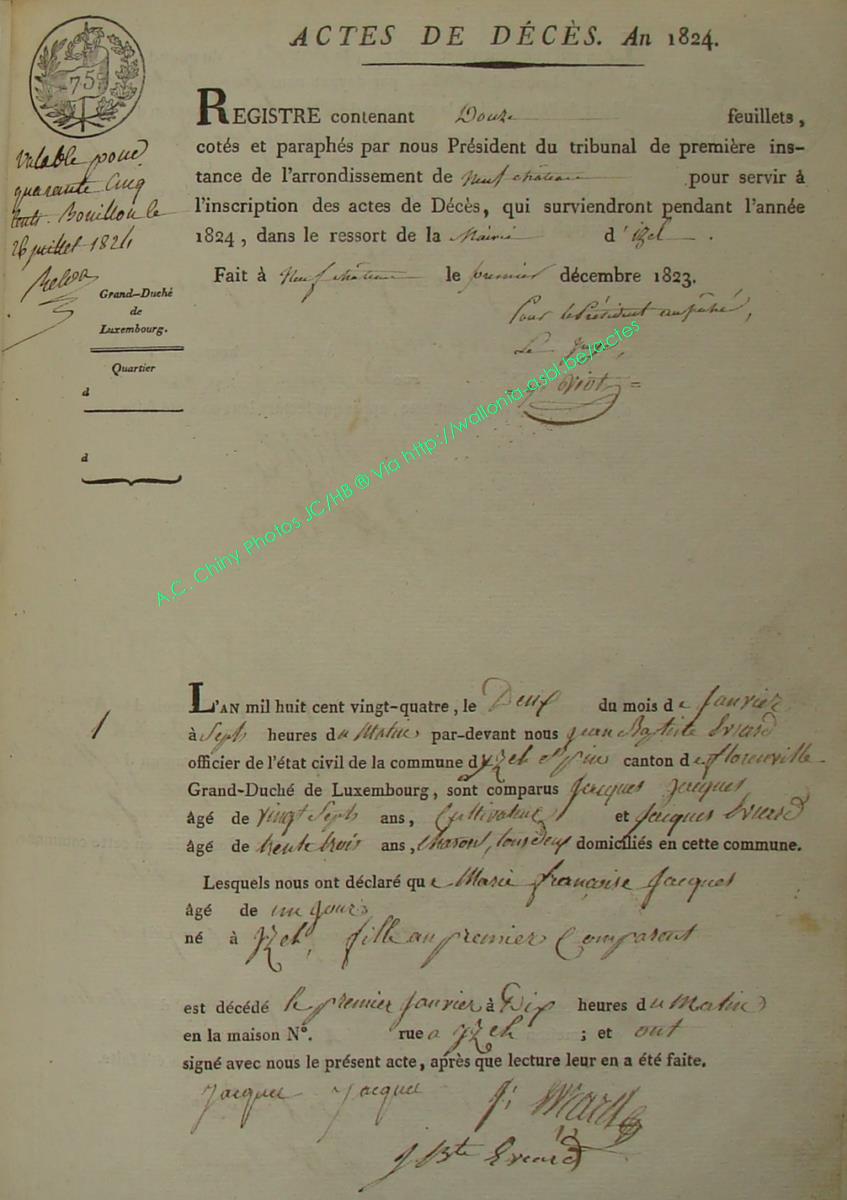 ACTES DE DÉCÈS. An 1824.
75
REGISTRE contenant Douze feuillets,
cotés et paraphés par nous Président du tribunal de première ins-
tance de l'arrondissement de Neufchâteau pour servir à
l'inscription des actes de Décès, qui surviendront pendant l'année
1824, dans le ressort de la Mairie d'izel.
Fait à Neufchâteau le premier décembre 1823.
Pour le Président empêché,
Le Juge,
Valable pour
quarante Cinq
Cents. Bouillon le
26 juillet 1824
Grand-Duché
de
Luxembourg.
Quartier
d
d
A.C. Chiny Photos JC/HB ® Via http://wallonia-asbl.be/actes
1
L'AN mil huit cent vingt-quatre, le Deux du mois de Janvier
à Sept heures du Matin par-devant nous Jean Baptiste Evrard
officier de l'état civil de la commune d'yzel et pin canton de florenville
Grand-Duché de Luxembourg, sont comparus Jacques Jacques
âgé de vingt Sept ans, Cultivateur et Jacques Evrard
âgé de trente trois ans, Charon, tous deux domiciliés en cette commune.
Lesquels nous ont déclaré que Marie françoise Jacques
âgé de un jour
né à yzel, fille au premier Comparent
est décédé le premier Janvier à Dix heures du Matin
en la maison N°. rue a yzel ; et ont
signé avec nous le présent acte, après que lecture leur en a été faite.
Jacques Jacques
J Bte Evrard